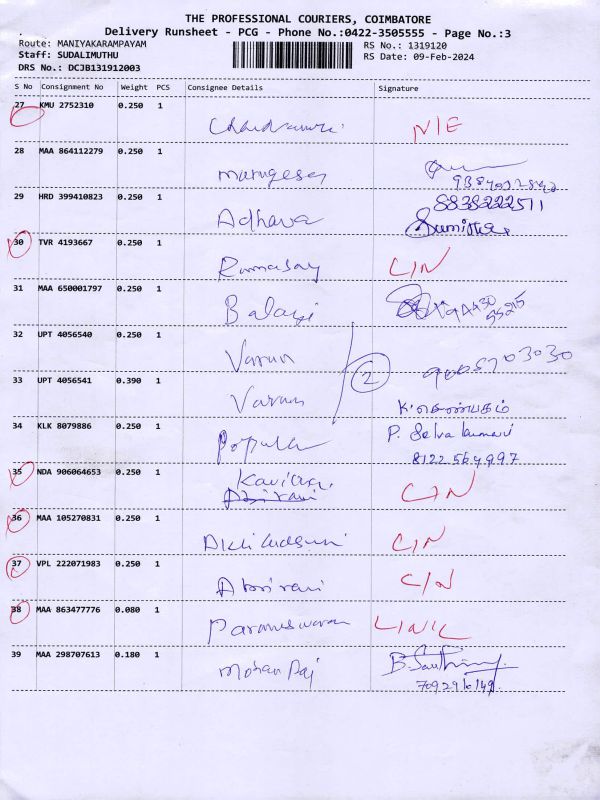 THE PROFESSIONAL COURIERS, COIMBATORE
Delivery Runsheet - PCG - Phone No.:0422-3505555 - Page No.:3
Route: MANIYAKARAMPAYAM RS No.: 1319120
Staff: SUDALIMUTHU RS Date: 09-Feb-2024
DRS No.: DCJB131912003
S No Consignment No Weight PCS Consignee Details Signature
27 KMU 2752310 0.250 1 N/E
28 MAA 864112279 0.250 1 Marugesan
29 HRD 399410823 0.250 1 Adhava 8838222511
Sumithra
30 TVR 4193667 0.250 1 Ramasay L/N
31 MAA 650001797 0.250 1 Balaji
32 UPT 4056540 0.250 1 Varun 2 9005703030
33 UPT 4056541 0.390 1 Varun K. செண்பகம்
34 KLK 8079886 0.250 1 Popular P. Selva kumari
8122564997
35 NDA 906064653 0.250 1 C/N
Abirami
36 MAA 105270831 0.250 1 C/N
37 VPL 222071983 0.250 1 Abirami C/N
38 MAA 863477776 0.080 1 Parameswaran
39 MAA 298707613 0.180 1 Mohan Raj